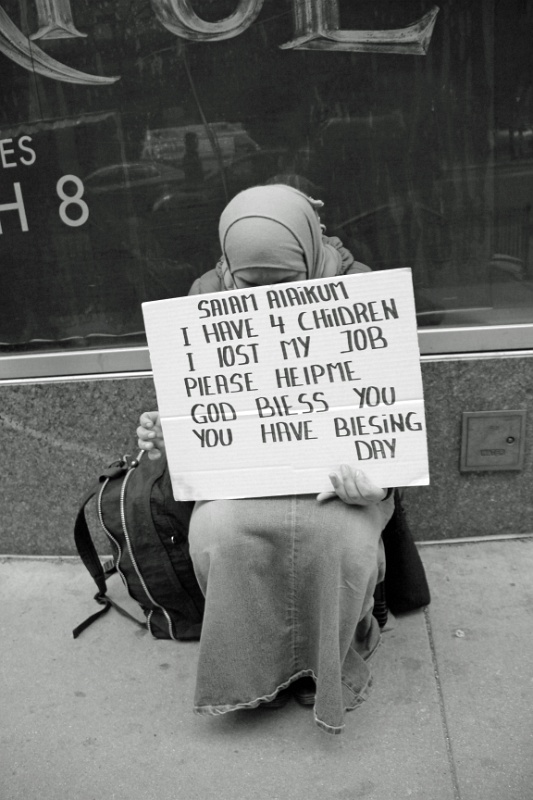 ES
H 8
SAlAM AlAiKUM
I HAVE 4 CHilDREN
I lOST MY JOB
PlEASE HElP ME
GOD BlESS YOU
YOU HAVE BlESiNG
DAY